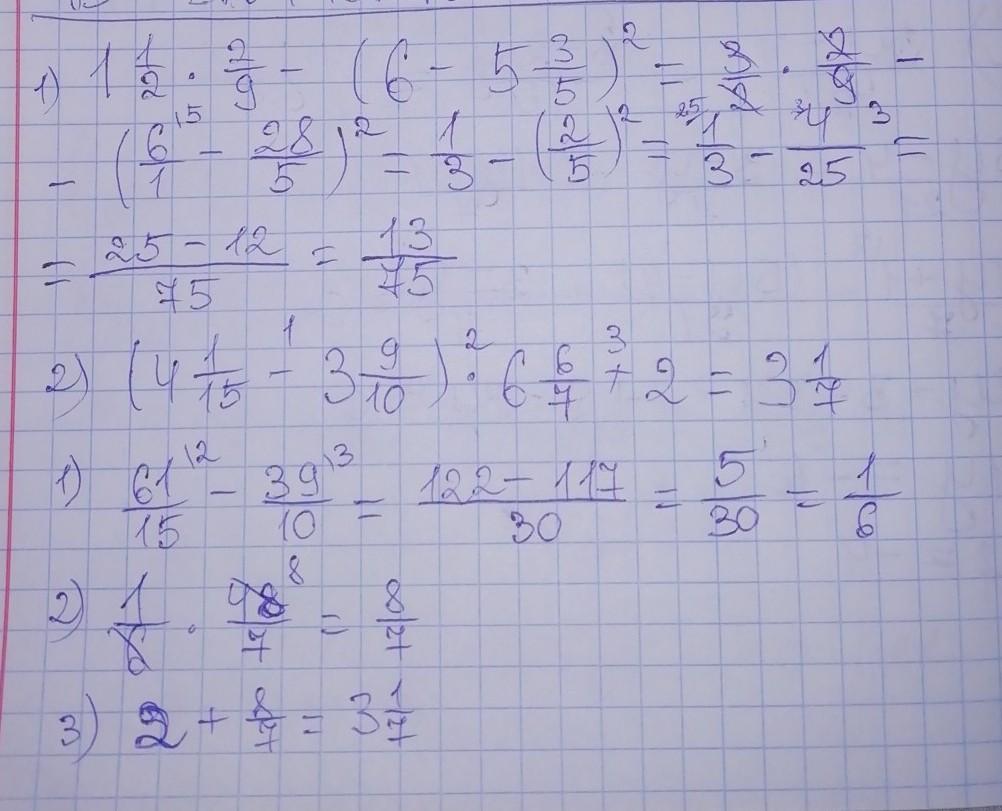 1) 1 1/2 · 2/9 - (6 - 5 3/5)² = 3/2 · 2/9 -
- (6/1 \5 - 28/5)² = 1/3 - (2/5)² = 25/ 1/3 - 4/25 \3 =
= (25 - 12)/75 = 13/75
2) (4 1/15 - ¹ 3 9/10) · ² 6 6/7 + ³ 2 = 3 1/7
1) 61/15 \2 - 39/10 \3 = (122 - 117)/30 = 5/30 = 1/6
2) 1/6 · 48/7 8 = 8/7
3) 2 + 8/7 = 3 1/7